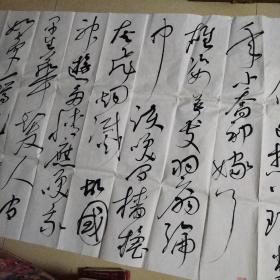 年小乔初嫁了
雄姿英发羽扇纶
巾谈笑间樯橹
灰飞烟灭故国
神游多情应笑我
早生华发人间
如梦一尊